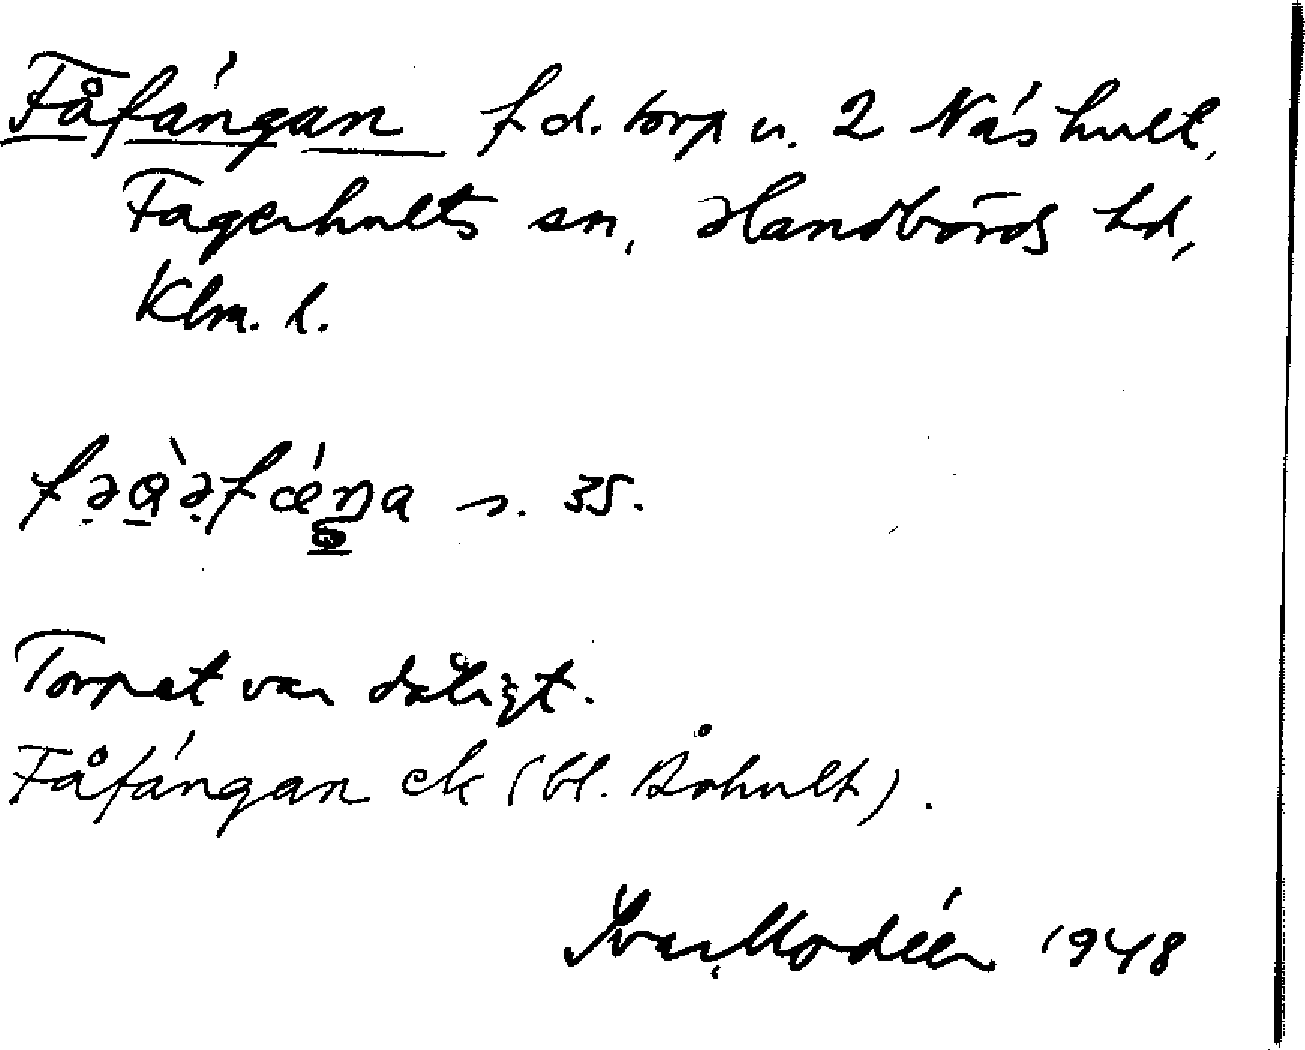 Fåfángan f.d. torp u. 2 Näshult,
Fagerhults sn, Handbörds hd,
Klm. l.
s. 35.
Torpet var dåligt.
Fåfángan ek (bl. Åshult).
Ivar Modéer 1948